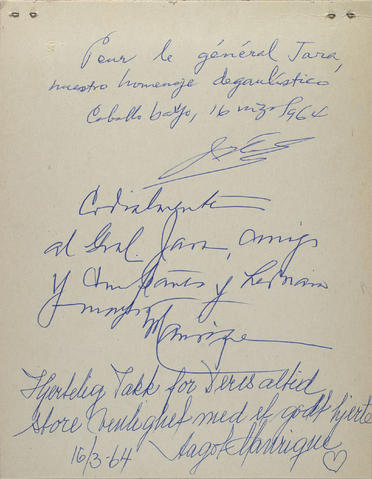 Pour le général Jara,
nuestro homenaje degaulístico
Caballo bayo, 16 mzo 1964
Cordialmente
al Gral. Jara, amigo
y compañero y hermano
mayor
Manrique
Hjertelig Takk for Deres altid
store venlighet med et godt hjerte
16/3-64 Aagot Manrique